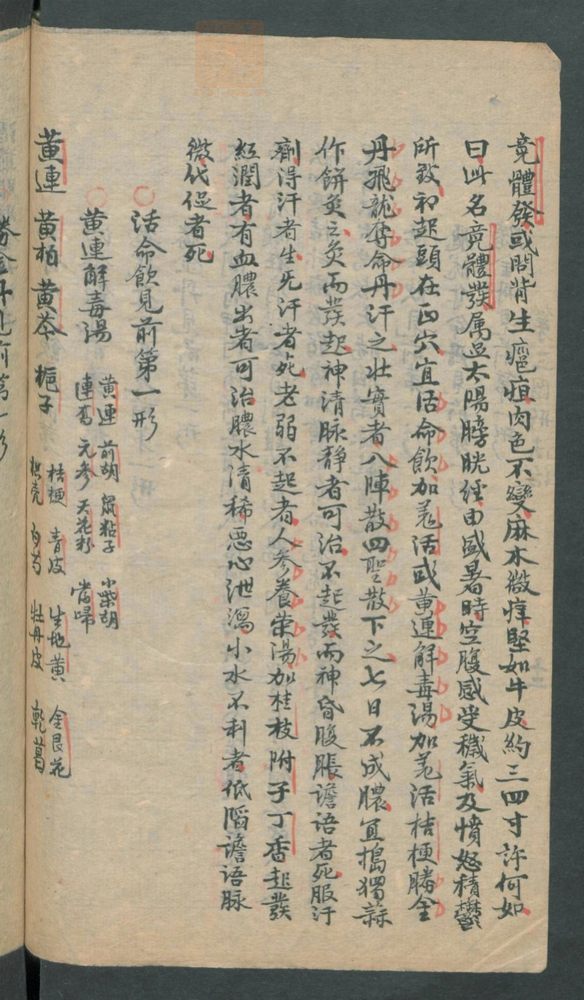 竟體發或問背生瘡疽肉色不變麻木微痒堅如牛皮約三四寸許何如
曰此名竟體發属足太陽膀胱經由盛暑時空腹感受穢氣及憤怒積鬱
所致初起頭在正穴宜活命飲加羌活或黄連解毒湯加羌活桔梗勝金
丹飛龍奪命丹汗之壯實者八陣散四聖散下之七日不成膿宜搗獨蒜
作餅灸之灸而發起神清脉静者可治不起發而神昏腹脹譫语者死服汗
劑得汗者生无汗者死老弱不起者人参養荣湯加桂枝附子丁香起發
紅潤者有血膿出者可治膿水清稀惡心泄瀉小水不利者低陷譫语脉
微代促者死
活命飲見前第一形
黄連解毒湯 黄連 前胡 鼠粘子 小柴胡
連喬 元参 天花粉 當歸
桔梗 青皮 生地黄 金艮花
枳壳 白芍 牡丹皮 乾葛
黄連 黄柏 黄芩 梔子
金丹見前第一形